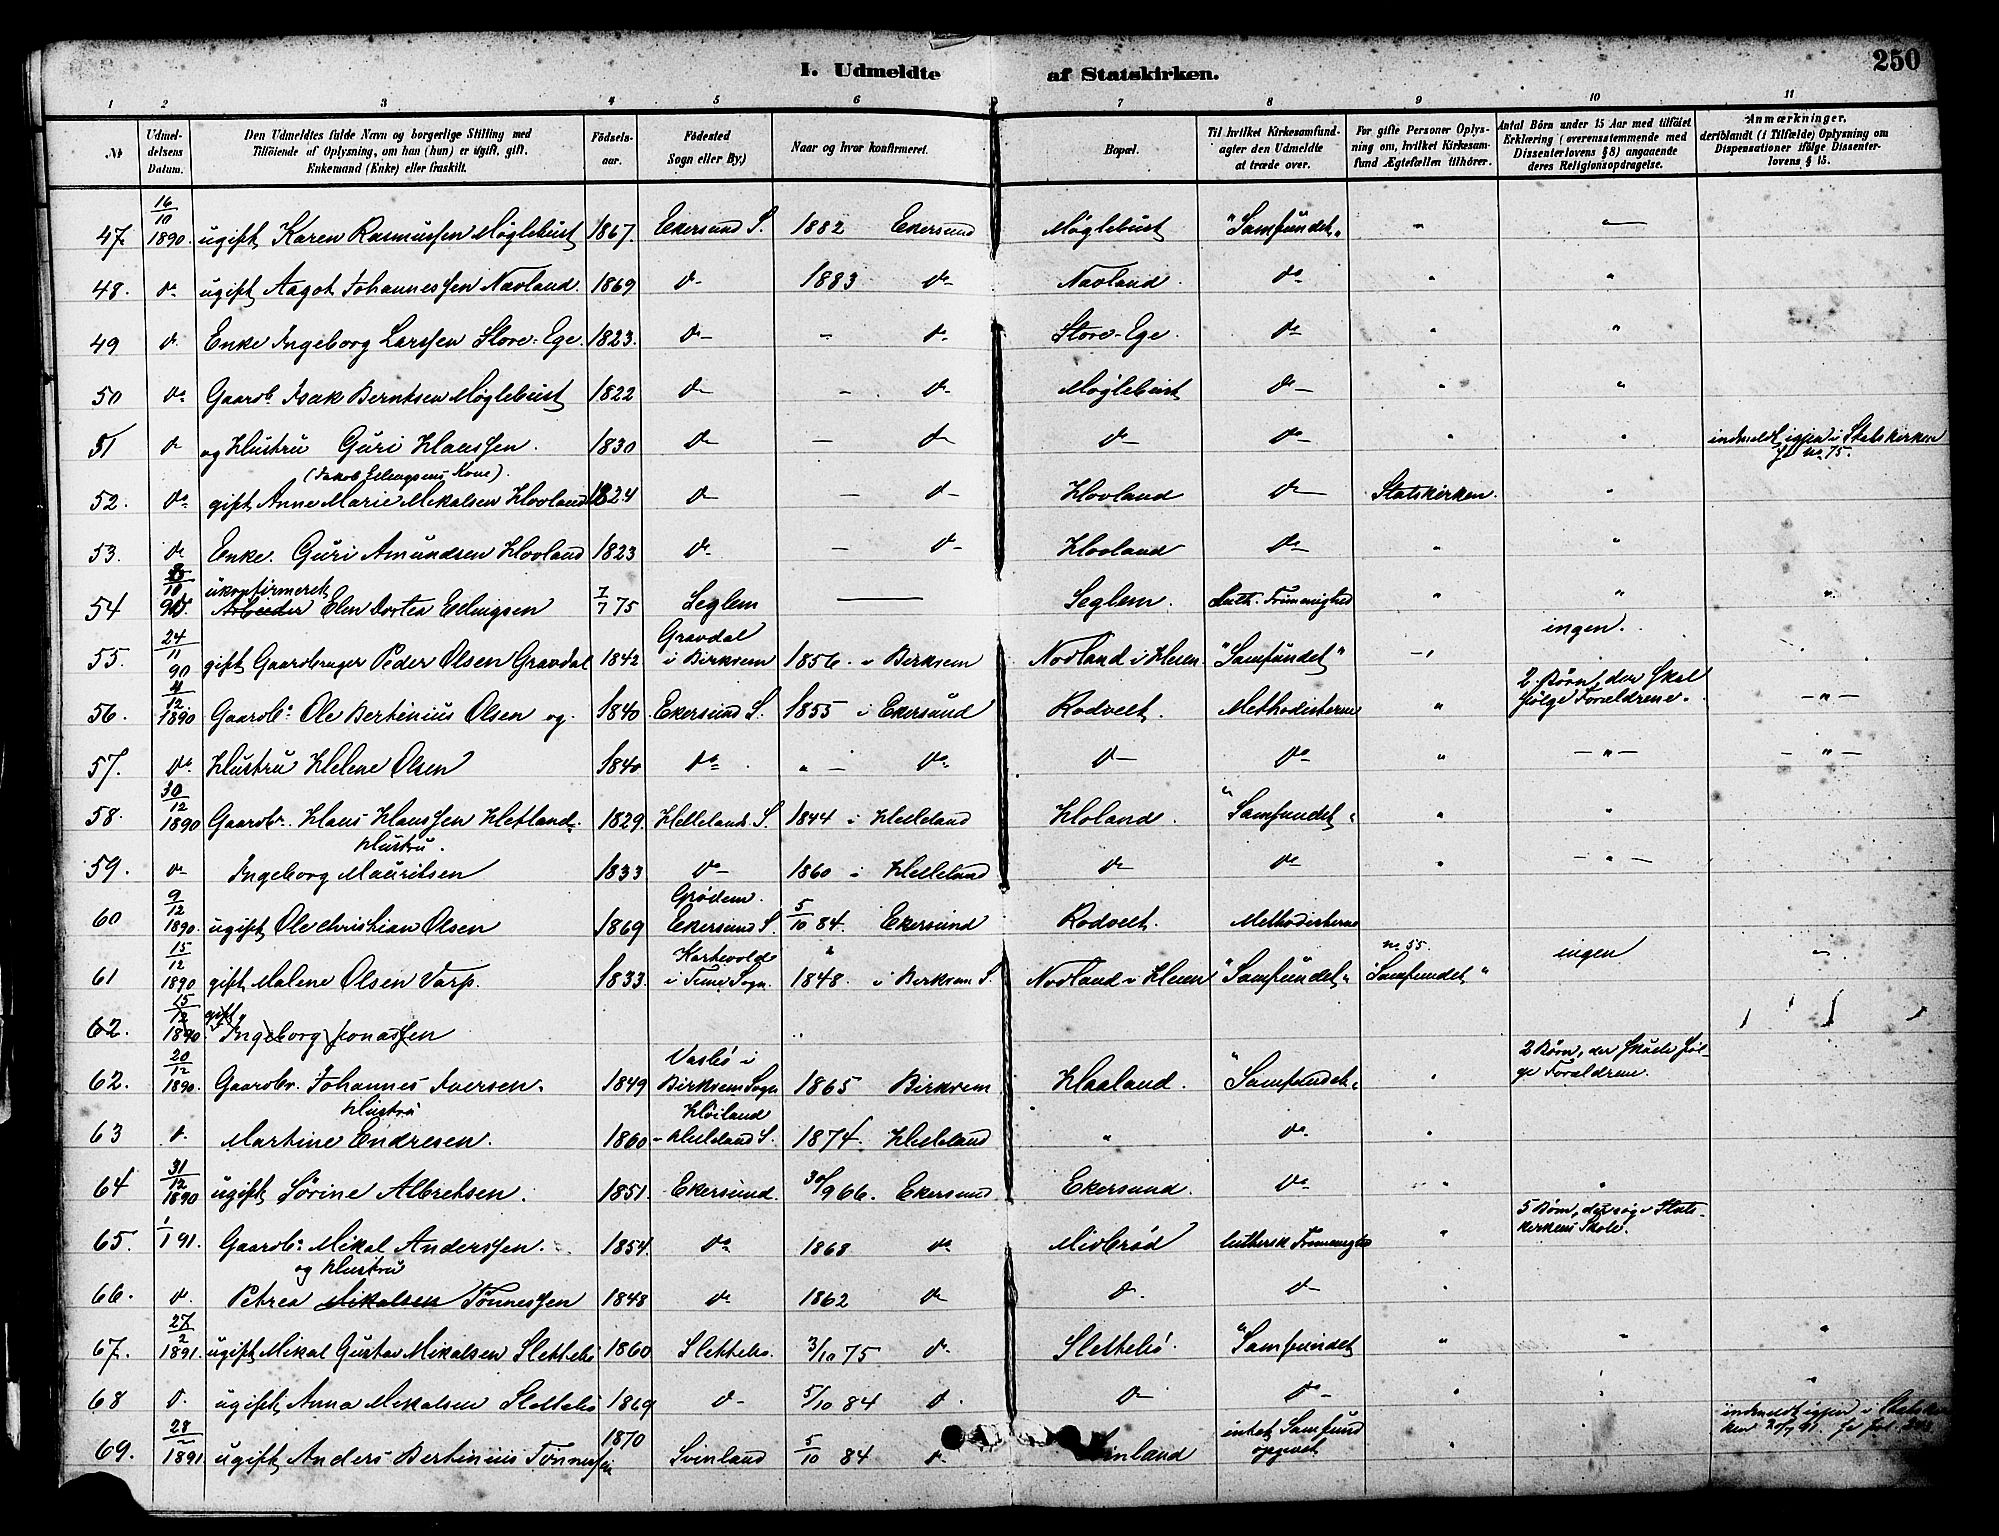 I. Udmeldte af Statskirken. 250
1 2 3 4 5 6 7 8 9 10 11
№ Udmeldelsens Datum. Den Udmeldtes fulde Navn og borgerlige Stilling med Tilføiende af Oplysning, om han (hun) er ugift, gift, Enkemand (Enke) eller fraskilt. Fødselsaar. Fødested Sogn eller By.) Naar og hvor konfirmeret. Bopæl. Til hvilket Kirkesamfund agter den Udmeldte at træde over. For gifte Personer Oplysning om, hvilket Kirkesamfund Ægtefællen tilhører. Antal Børn under 15 Aar med tilføiet Erklæring (overensstemmende med Dissenterlovens § 8) angaaende deres Religionsopdragelse. Anmærkninger, deriblandt (i Tilfælde) Oplysning om Dispensationer ifølge Dissenterlovens § 15.
47. 16/10 1890. ugift Karen Rasmussen Møglebust 1867. Ekersund S. 1882 Ekersund Møglebust "Samfundet" " "
48. do ugift Aagot Johannessen Navland. 1869 do 1883 do Navland. do " "
49 do Enke Ingeborg Larssen Store-Ege. 1823. do - do Store-Ege. do " "
50 do Gaardb. Isak Berntsen Møglebust 1822 do - do Møglebust do " "
51 do og Hustru Guri Hanssen. 1830 do - do do do " " indmeldt igjen i Statskirken no 75.
52. do (Jakob Edvigsens Kone). gift Anne Marie Mikalsen Hovland 1824 do - do Hovland do Statskirken. "
53. do Enke. Guri Amundsen Hovland 1823 do - do Hovland do " "
54 8/10 90. ukonfirmeret Arbeider Elen Dortea Edvigsen 7/7 75 Seglem — Seglem. Luth. Frimenighed " " "
55. 24/11 90 gift Gaardbruger Peder Olsen Gravdal 1842 Gravdal i Birkrem 1856. i Birkrem Nodland i Heien "Samfundet" -"- ingen.
56. 4/12 1890 Gaardb. Ole Bertinius Olsen og 1840 Ekersund S. 1855 i Ekersund Rodvelt. Methodisterne " 2 Børn, der skal følge Forældrene. -"-
57. do Hustru Helene Olsen 1840 do " - do do do " -"- -"-
58. 30/12 1890 Gaardbr. Hans Hanssen Hetland. 1829. Hellelands S. 1844 i Helleland Holand. "Samfundet" " "
59. do Hustru. Ingeborg Mauritsen 1833 do 1860 i Helleland do do " -"-
60 9/12 1890. ugift Ole Christian Olsen 1869 Grødem. Ekersund S. 5/10 84. Ekersund Rodvelt. Methodisterne
61 15/12 1890 gift Malene Olsen Varp. 1833. i Time Sogn. 1848. i Birkrem S. Nodland i Heien "Samfundet" no 55. "Samfundet" ingen "
62. 15/12 1890 gift Ingeborg Jonassen
62. 20/12 1890. Gaardbr. Johannes Iversen. 1849 Vasbø i Birkrem Sogn 1865 Birkrem Haaland. "Samfundet" " 2 Børn, der skulle følge Forældrene.
63 do Hustru Martine Endresen. 1860 Høiland - Helleland S. 1874. Helleland " do "
64 31/12 1890 ugift Sørine Albretsen. 1851. Ekersund. 30/9 66. Ekersund Ekersund. do " "
65. 1/1 91. Gaardb. Mikal Anderssen. 1854. do 1868 do Midbrød luthersk Frimenighed " 5 Børn, der søge Statskirkens Skole.
66. do og Hustru Petrea Mikalsen Tønnessen 1848 do 1862 do do do
67. 27/2 1891. ugift Mikal Gustav Mikalsen Slettebø 1860 Slettebø. 3/10 75 do Slettebø. "Samfundet " " "
68 do ugift Anna Mikalsen Slettebø 1869 do 5/10 84 do do do " "
69. 28/2 1891 ugift Anders Bertinius Tønnessen 1870 Svinland 5/10 84 do Svinland intet Samfund opgivet " indmeldt igjen i Statskirken 20/7 91.